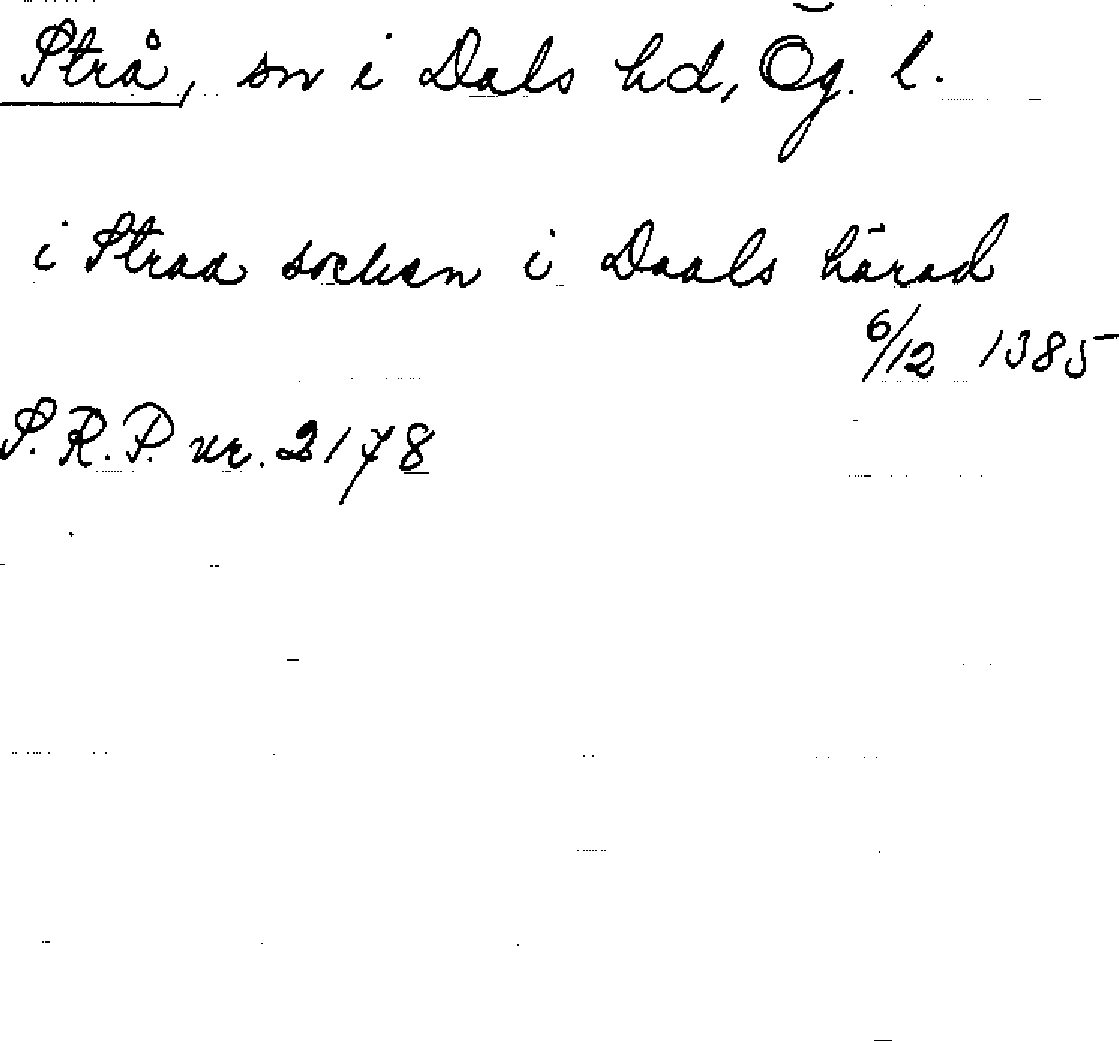 Strå, sn i Dals hd, Ög. l.
i Straa sockan i Daals härad
6/12 1385
S.R.P. nr. 2178